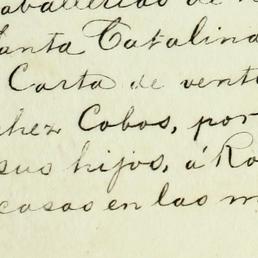 aballerias de
Santa Catalina
Carta de vent
chez Cobos, por
sus hijos, á Ro
casas en las m